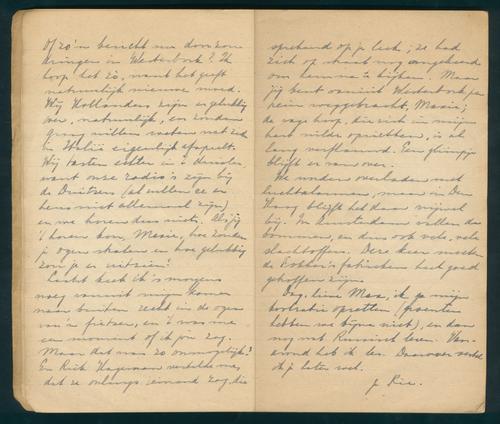 Of zo'n bericht nu door zou
dringen in Westerbork? Ik
hoop het zò, want het geeft
natuurlijk nieuwe moed.
Wij Hollanders zijn er gelukkig
over, natuurlijk, en zouden
graag willen weten wat zich
in Italië eigenlijk afspeelt.
Wij tasten echter in 't duister,
want onze radio's zijn bij
de Duitsers (al willen ze er
heus niet allemaal zijn)
en we horen dus niets. Als jij
't horen kon, Maxie, hoe zouden
je ogen stralen en hoe gelukkig
zou je er uitzien!
Laatst keek ik 's morgens
vroeg vanuit mijn kamer
naar buiten recht in de ogen
van 'n fietser, en 't was me
een moment of ik jou zag.
Maar dat was zo onmogelijk!
En Rick Hageman vertelde me,
dat ze onlangs iemand zag, die
sprekend op je leek; ze had
zich op straat nog omgekeerd
om hem na te kijken. Maar
jij bent vanuit Westerbork per
trein weggebracht, Maxie;
de vage hoop, die zich in mijn
hart wilde oprichten, is al
lang verflauwd. Een glimpje
blijft er van over.
We worden overladen met
luchtalarmen, maar in Den
Haag blijft het daar vrijwel
bij. In Amsterdam vallen de
bommen, en dan ook vele, vele
slachtoffers. Deze keer moeten
de Fokker's fabrieken heel goed
getroffen zijn.
Dag, lieve Max, ik ga mijn
breiwerk opzetten (
hebben we bijna niet), en dan
nog wat Russisch leren. Van-
avond heb ik les. Daarover vertel
ik je later wel.
je Ria.